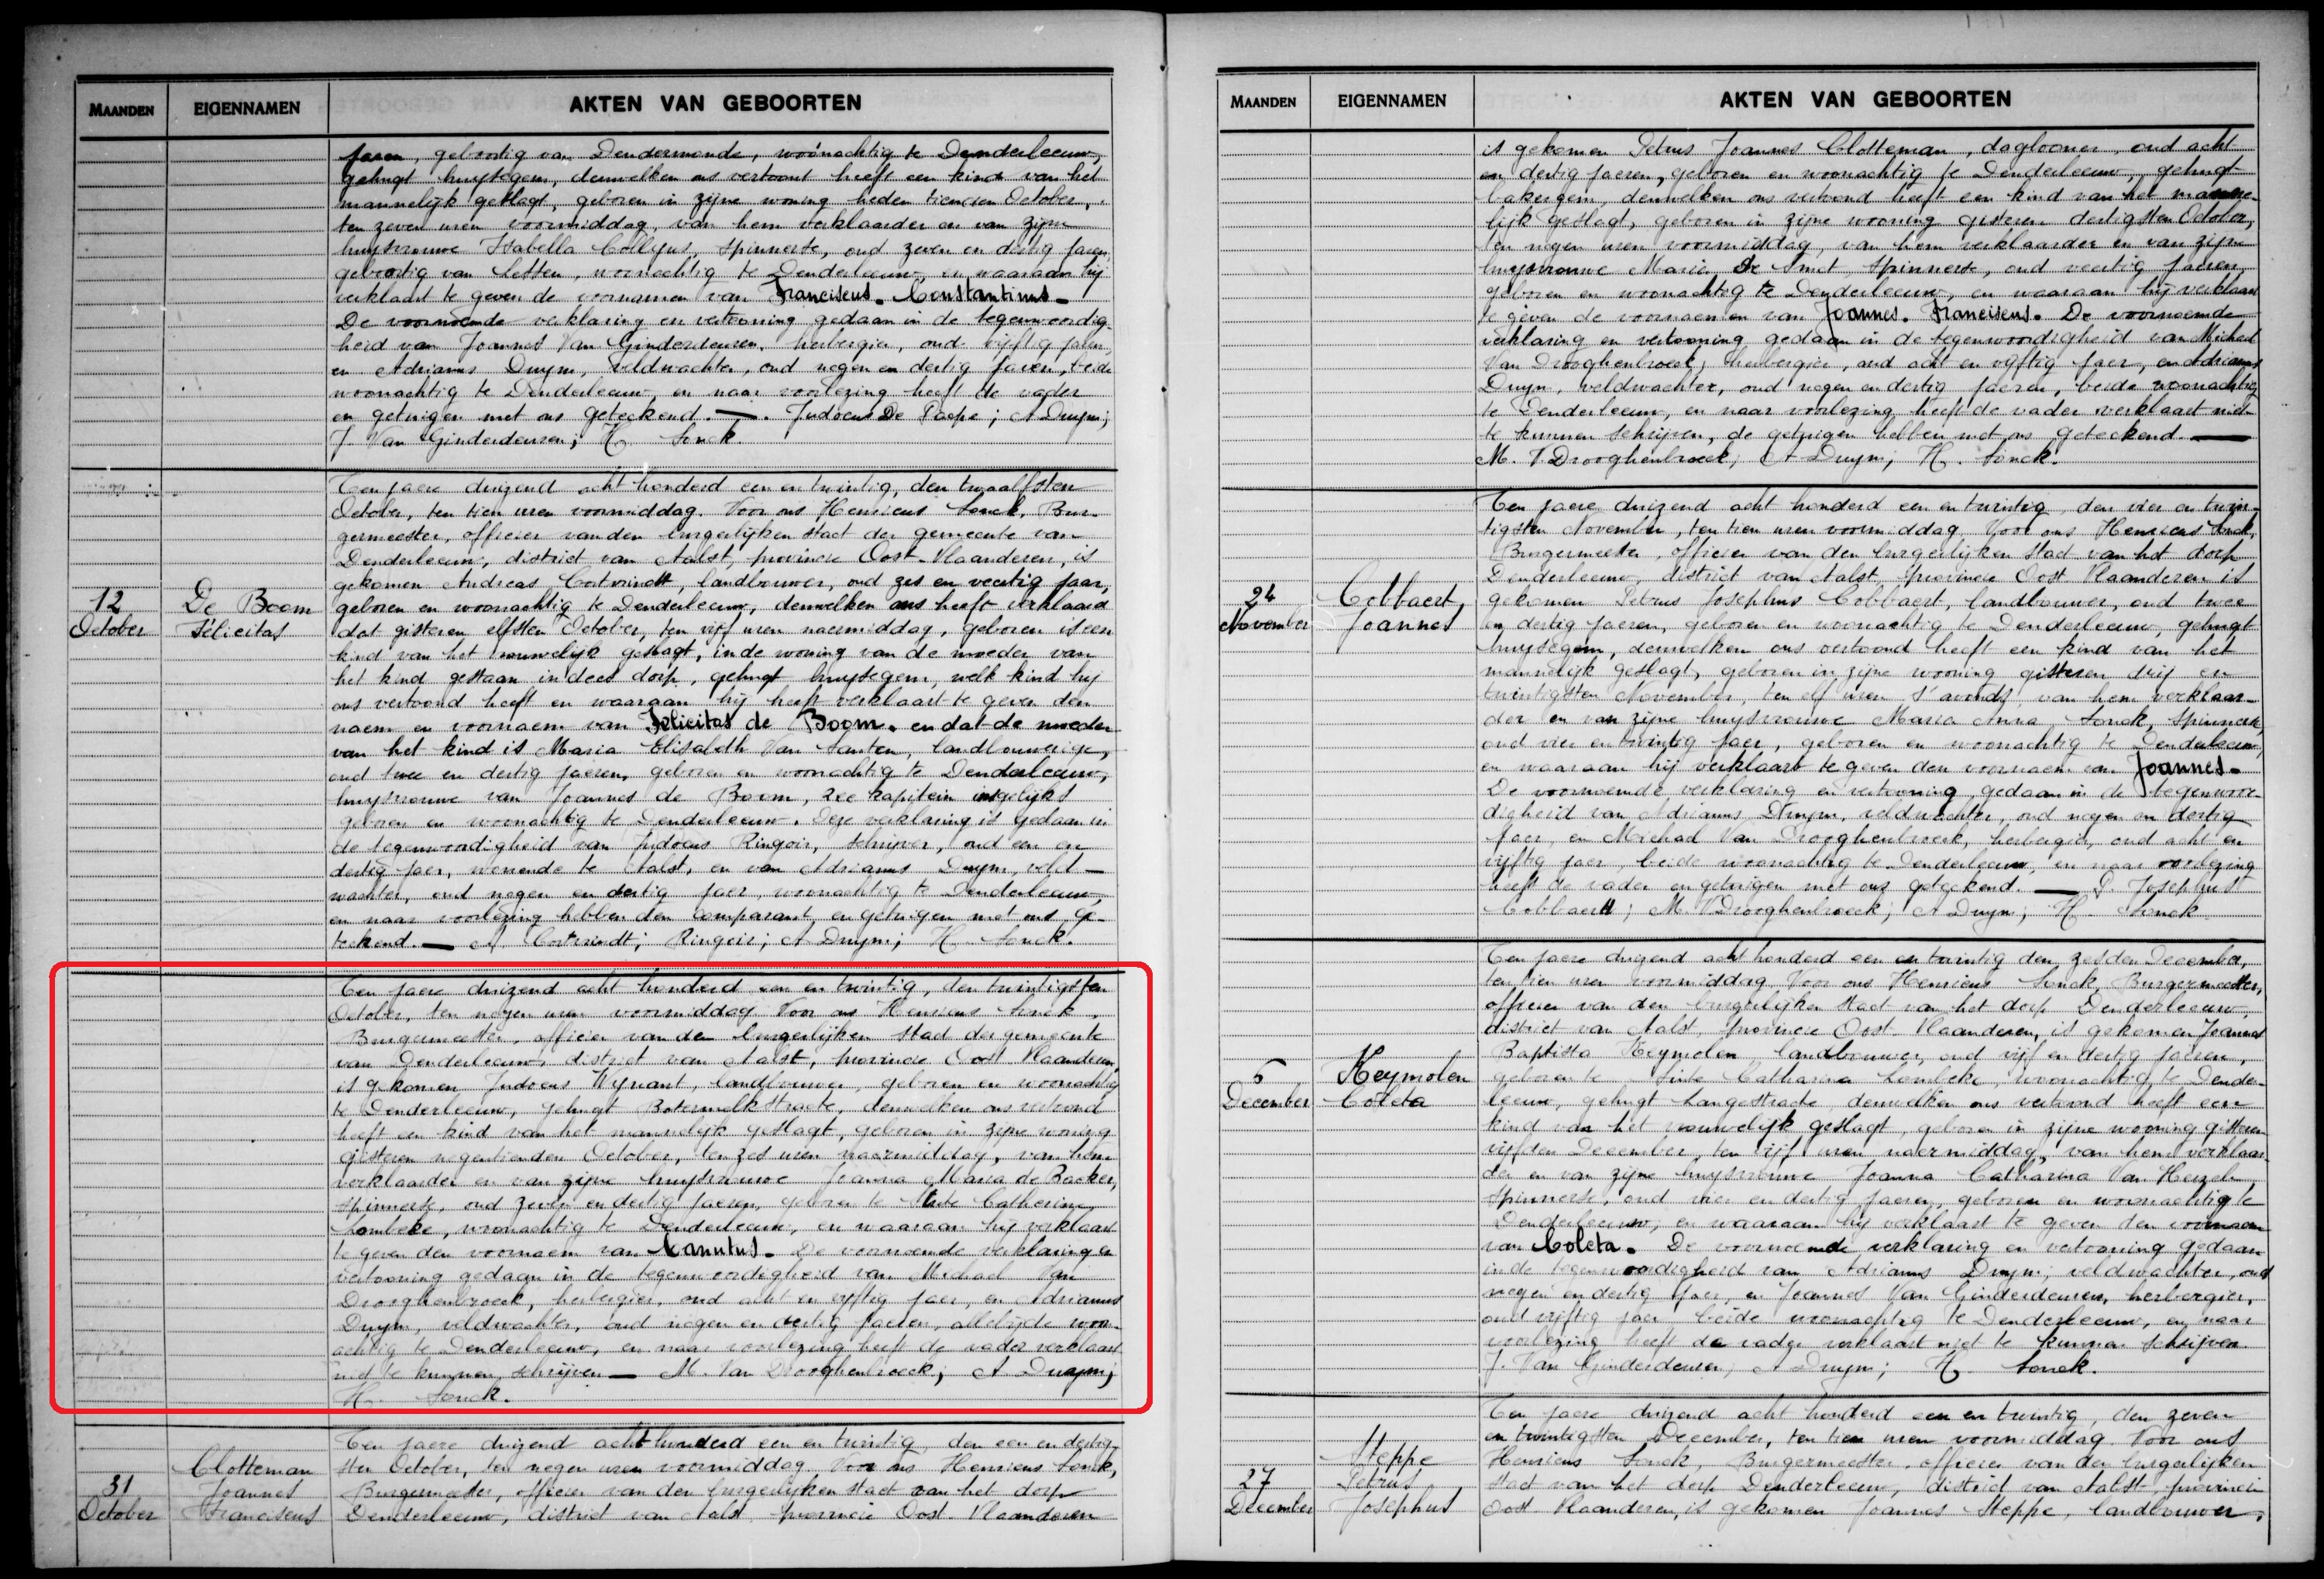 MAANDEN EIGENNAMEN AKTEN VAN GEBOORTEN
jaren, geboortig van Dendermonde, woonachtig te Denderleeuw,
gehugt huystegem, denwelken ons vertoont heeft een kind van het
mannelijk geslagt, geboren in zijne woning heden tienden October,
ten zeven uren voormiddag, van hem verklaarder en van zijne
huysvrouwe Isabella Collyns, spinnerse, oud zeven en dertig jaren,
geboortig van Letten, woonachtig te Denderleeuw, en waaraan hij
verklaart te geven de voornamen van Franciscus. Constantinus.
De voornoemde verklaring en vertooning gedaan in de tegenwoordig-
heid van Joannes Van Ginderdeuren, herbergier, oud vijftig jaren,
en Adrianus Druym, veldwachter, oud negen en dertig jaren, beide
woonachtig te Denderleeuw, en naar voorlezing heeft de vader
en getuigen met ons geteekend. — Judocus De Paepe; A Druym;
J. Van Ginderdeuren; H. Sonck
Ten jaere duizend acht honderd een en twintig, den twaalfsten
October, ten tien uren voormiddag. Voor ons Henricus Sonck, Bur-
germeester, officier van den burgerlijken staet der gemeente van
Denderleeuw, district van Aalst, provincie Oost-Vlaanderen, is
gekomen Andreas Cortvrindt, landbouwer, oud zes en veertig jaar,
12 De Boom geboren en woonachtig te Denderleeuw, denwelken ons heeft verklaard
October Felicitas dat gisteren elfsten October, ten vijf uren naermiddag, geboren is een
kind van het vrouwelijk geslagt, in de woning van de moeder van
het kind gestaan in deez dorp, gehugt huystegem, welk kind hij
ons vertoond heeft en waaraan hij heeft verklaart te geven den
naem en voornaem van Felicitas de Boom. en dat de moeder
van het kind is Maria Elisabeth Van Santen, landbouwerige,
oud twee en dertig jaeren, geboren en woonachtig te Denderleeuw,
huysvrouwe van Joannes de Boom, zee kapitein insgelijks
geboren en woonachtig te Denderleeuw. Deze verklaring is gedaan in
de tegenwoordigheid van Judocus Ringoir, schrijver, oud een en
dertig jaer, wonende te Aalst, en van Adrianus Druym, veld—
wachter, oud negen en dertig jaer, woonachtig te Denderleeuw,
en naar voorlezing hebben den comparant en getuigen met ons ge-
teekend. — A Cortvrindt; Ringoir; A Druym; H. Sonck.
Ten jaere duizend acht honderd een en twintig, den twintigsten
October, ten negen uren voormiddag. Voor ons Henricus Sonck,
Burgermeester, officier van den burgerlijken staet der gemeente
van Denderleeuw, district van Aalst, provincie Oost Vlaanderen,
is gekomen Judocus Wynant, landbouwer, geboren en woonachtig
te Denderleeuw, gehugt Botermelkstraete, denwelken ons vertoond
heeft een kind van het mannelijk geslagt, geboren in zijne woning
gisteren negentienden October, ten zes uren naermiddag, van hem
verklaarder en van zijne huysvrouwe Joanna Maria de Backer,
spinnerse, oud zeven en dertig jaeren, geboren te Sinte Catherina
Lombeke, woonachtig te Denderleeuw, en waaraan hij verklaart
te geven den voornaem van Canutus. De voornoemde verklaring en
vertooning gedaan in de tegenwoordigheid van Michael Van
Drooghenbroeck, herbergier, oud acht en vyftig jaer, en Adrianus
Druym, veldwachter, oud negen en dertig jaeren, allebijde woon-
achtig te Denderleeuw, en naar voorlezing heeft de vader verklaart
niet te kunnen schrijven — M. Van Drooghenbroeck; A Druym;
H. Sonck.
Ten jaere duizend acht honderd een en twintig, den een en dertig-
Clotteman sten October, ten negen uren voormiddag. Voor ons Henricus Sonck,
31 Joannes Burgermeester, officier van den burgerlijken staet van het dorp
October Franciscus Denderleeuw, district van Aalst, provincie Oost-Vlaanderen
MAANDEN EIGENNAMEN AKTEN VAN GEBOORTEN
is gekomen Petrus Joannes Clotteman, daglooner, oud acht
en dertig jaeren, geboren en woonachtig te Denderleeuw, gehugt
bakergem, denwelken ons vertoond heeft een kind van het manne-
lijk geslagt, geboren in zijne wooning gisteren dertigsten October,
ten negen uren voormiddag, van hem verklaarder en van zijne
huysvrouwe Maria De Smet, spinnerse, oud veertig jaeren,
geboren en woonachtig te Denderleeuw, en waaraan hij verklaart
te geven de voornaemen van Joannes. Franciscus. De voornoemde
verklaring en vertooning gedaan in de tegenwoordigheid van Michael
Van Drooghenbroeck, herbergier, oud acht en vyftig jaer, en Adrianus
Druym, veldwachter, oud negen en dertig jaeren, beide woonachtig
te Denderleeuw, en naar voorlezing heeft de vader verklaart niet
te kunnen schrijven, de getuigen hebben met ons geteekend. —
M. V Drooghenbroeck; A Druym; H. Sonck.
Ten jaere duizend acht honderd een en twintig, den vier en twin-
tigsten November, ten tien uren voormiddag. Voor ons Henricus Sonck,
Burgermeester, officier van den burgerlijken staet van het dorp
Denderleeuw, district van Aalst, provincie Oost Vlaanderen is
24 Cobbaert, gekomen Petrus Josephus Cobbaert, landbouwer, oud twee
November Joannes en dertig jaeren, geboren en woonachtig te Denderleeuw, gehugt
huystegem, denwelken ons vertoond heeft een kind van het
mannelijk geslagt, geboren in zijne wooning gisteren drij en
twintigsten November, ten elf uren s'avonds, van hem verklaar-
der en van zijne huysvrouwe Maria Anna Sonck, spinnerse,
oud vier en twintig jaer, geboren en woonachtig te Denderleeuw,
en waaraan hij verklaart te geven den voornaem van Joannes.
De voornoemde verklaring en vertooning gedaan in de tegenwoor-
digheid van Adrianus Druym, veldwachter, oud negen en dertig
jaer, en Michael Van Drooghenbroeck, herbergier, oud acht en
vijftig jaer, beide woonachtig te Denderleeuw, en naar voorlezing
heeft de vader en getuigen met ons geteekend. — P. Josephus
Cobbaert; M. VDrooghenbroeck; A Druym; H. Sonck
Ten jaere duizend acht honderd een en twintig den zesden December,
ten tien uren voormiddag, Voor ons Henricus Sonck, Burgermeester,
officier van den burgerlijken staet van het dorp Denderleeuw,
district van Aalst, provincie Oost-Vlaanderen, is gekomen Joannes
6 Keymolen Baptista Keymolen, landbouwer, oud vijf en dertig jaeren,
December Coleta geboren te Sinte Catharina Lombeke, woonachtig te Dender-
leeuw, gehugt Langestraete, denwelken ons vertoond heeft een
kind van het vrouwelijk geslagt, geboren in zijne wooning gisteren
vijfden December, ten vijf uren naermiddag, van hem verklaar-
der en van zijne huysvrouwe Joanna Catharina Van Heuzele,
spinnerse, oud vier en dertig jaeren, geboren en woonachtig te
Denderleeuw, en waaraan hij verklaart te geven den voornaem
van Coleta. De voornoemde verklaring en vertooning gedaan
in de tegenwoordigheid van Adrianus Druym, veldwachter, oud
negen en dertig jaer, en Joannes Van Ginderdeuren, herbergier,
oud vijftig jaer beide woonachtig te Denderleeuw, en naar
voorlezing heeft de vader verklaart niet te kunnen schrijven.
J. Van Ginderdeuren; A Druym; H. Sonck.
Ten jaere duizend acht honderd een en twintig, den zeven
en twintigsten December, ten tien uren voormiddag. Voor ons
Steppe Henricus Sonck, Burgermeester, officier van den burgerlijken
27 Petrus staet van het dorp Denderleeuw, district van Aalst, provincie
December Josephus Oost Vlaanderen, is gekomen Joannes Steppe, landbouwer,